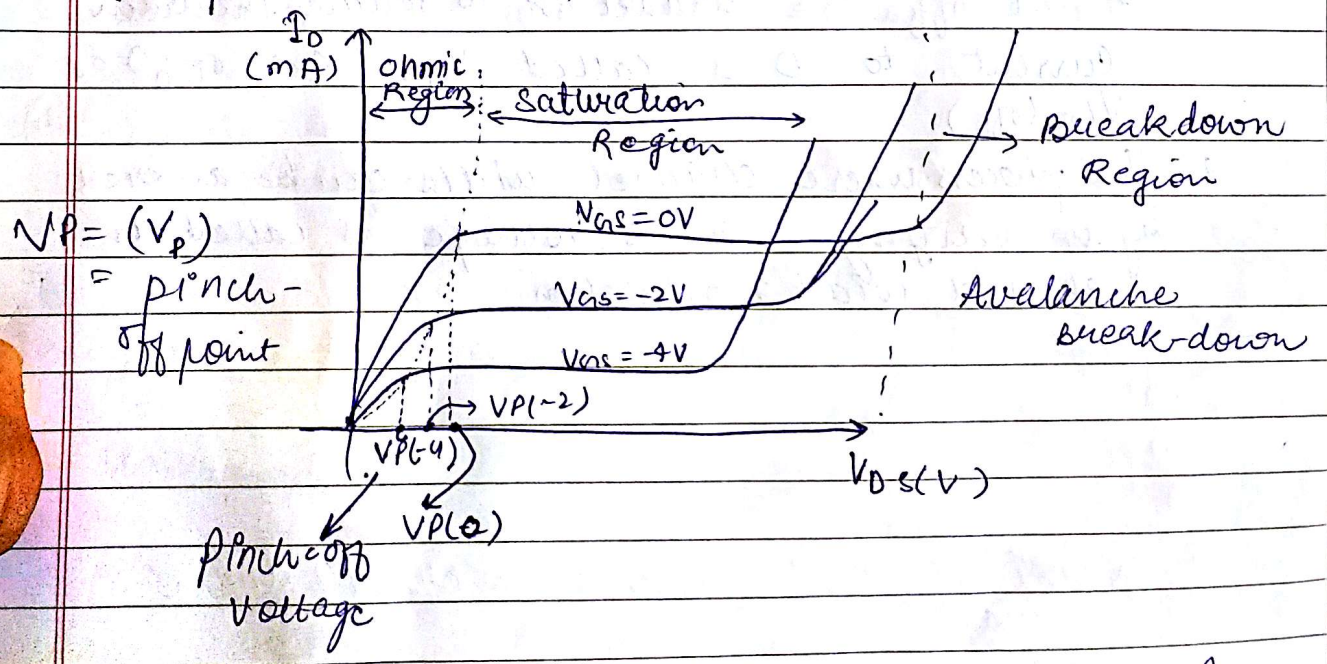 I_D
(mA)
ohmic
Region
saturation
Region
Breakdown
Region
VGS=0V
VP= (Vp)
= pinch-
off point
VGS=-2V
Avalanche
Break-down
VGS = -4V
VP(-2)
VP(-4)
VDS(V)
VP(0)
Pinch-off
voltage